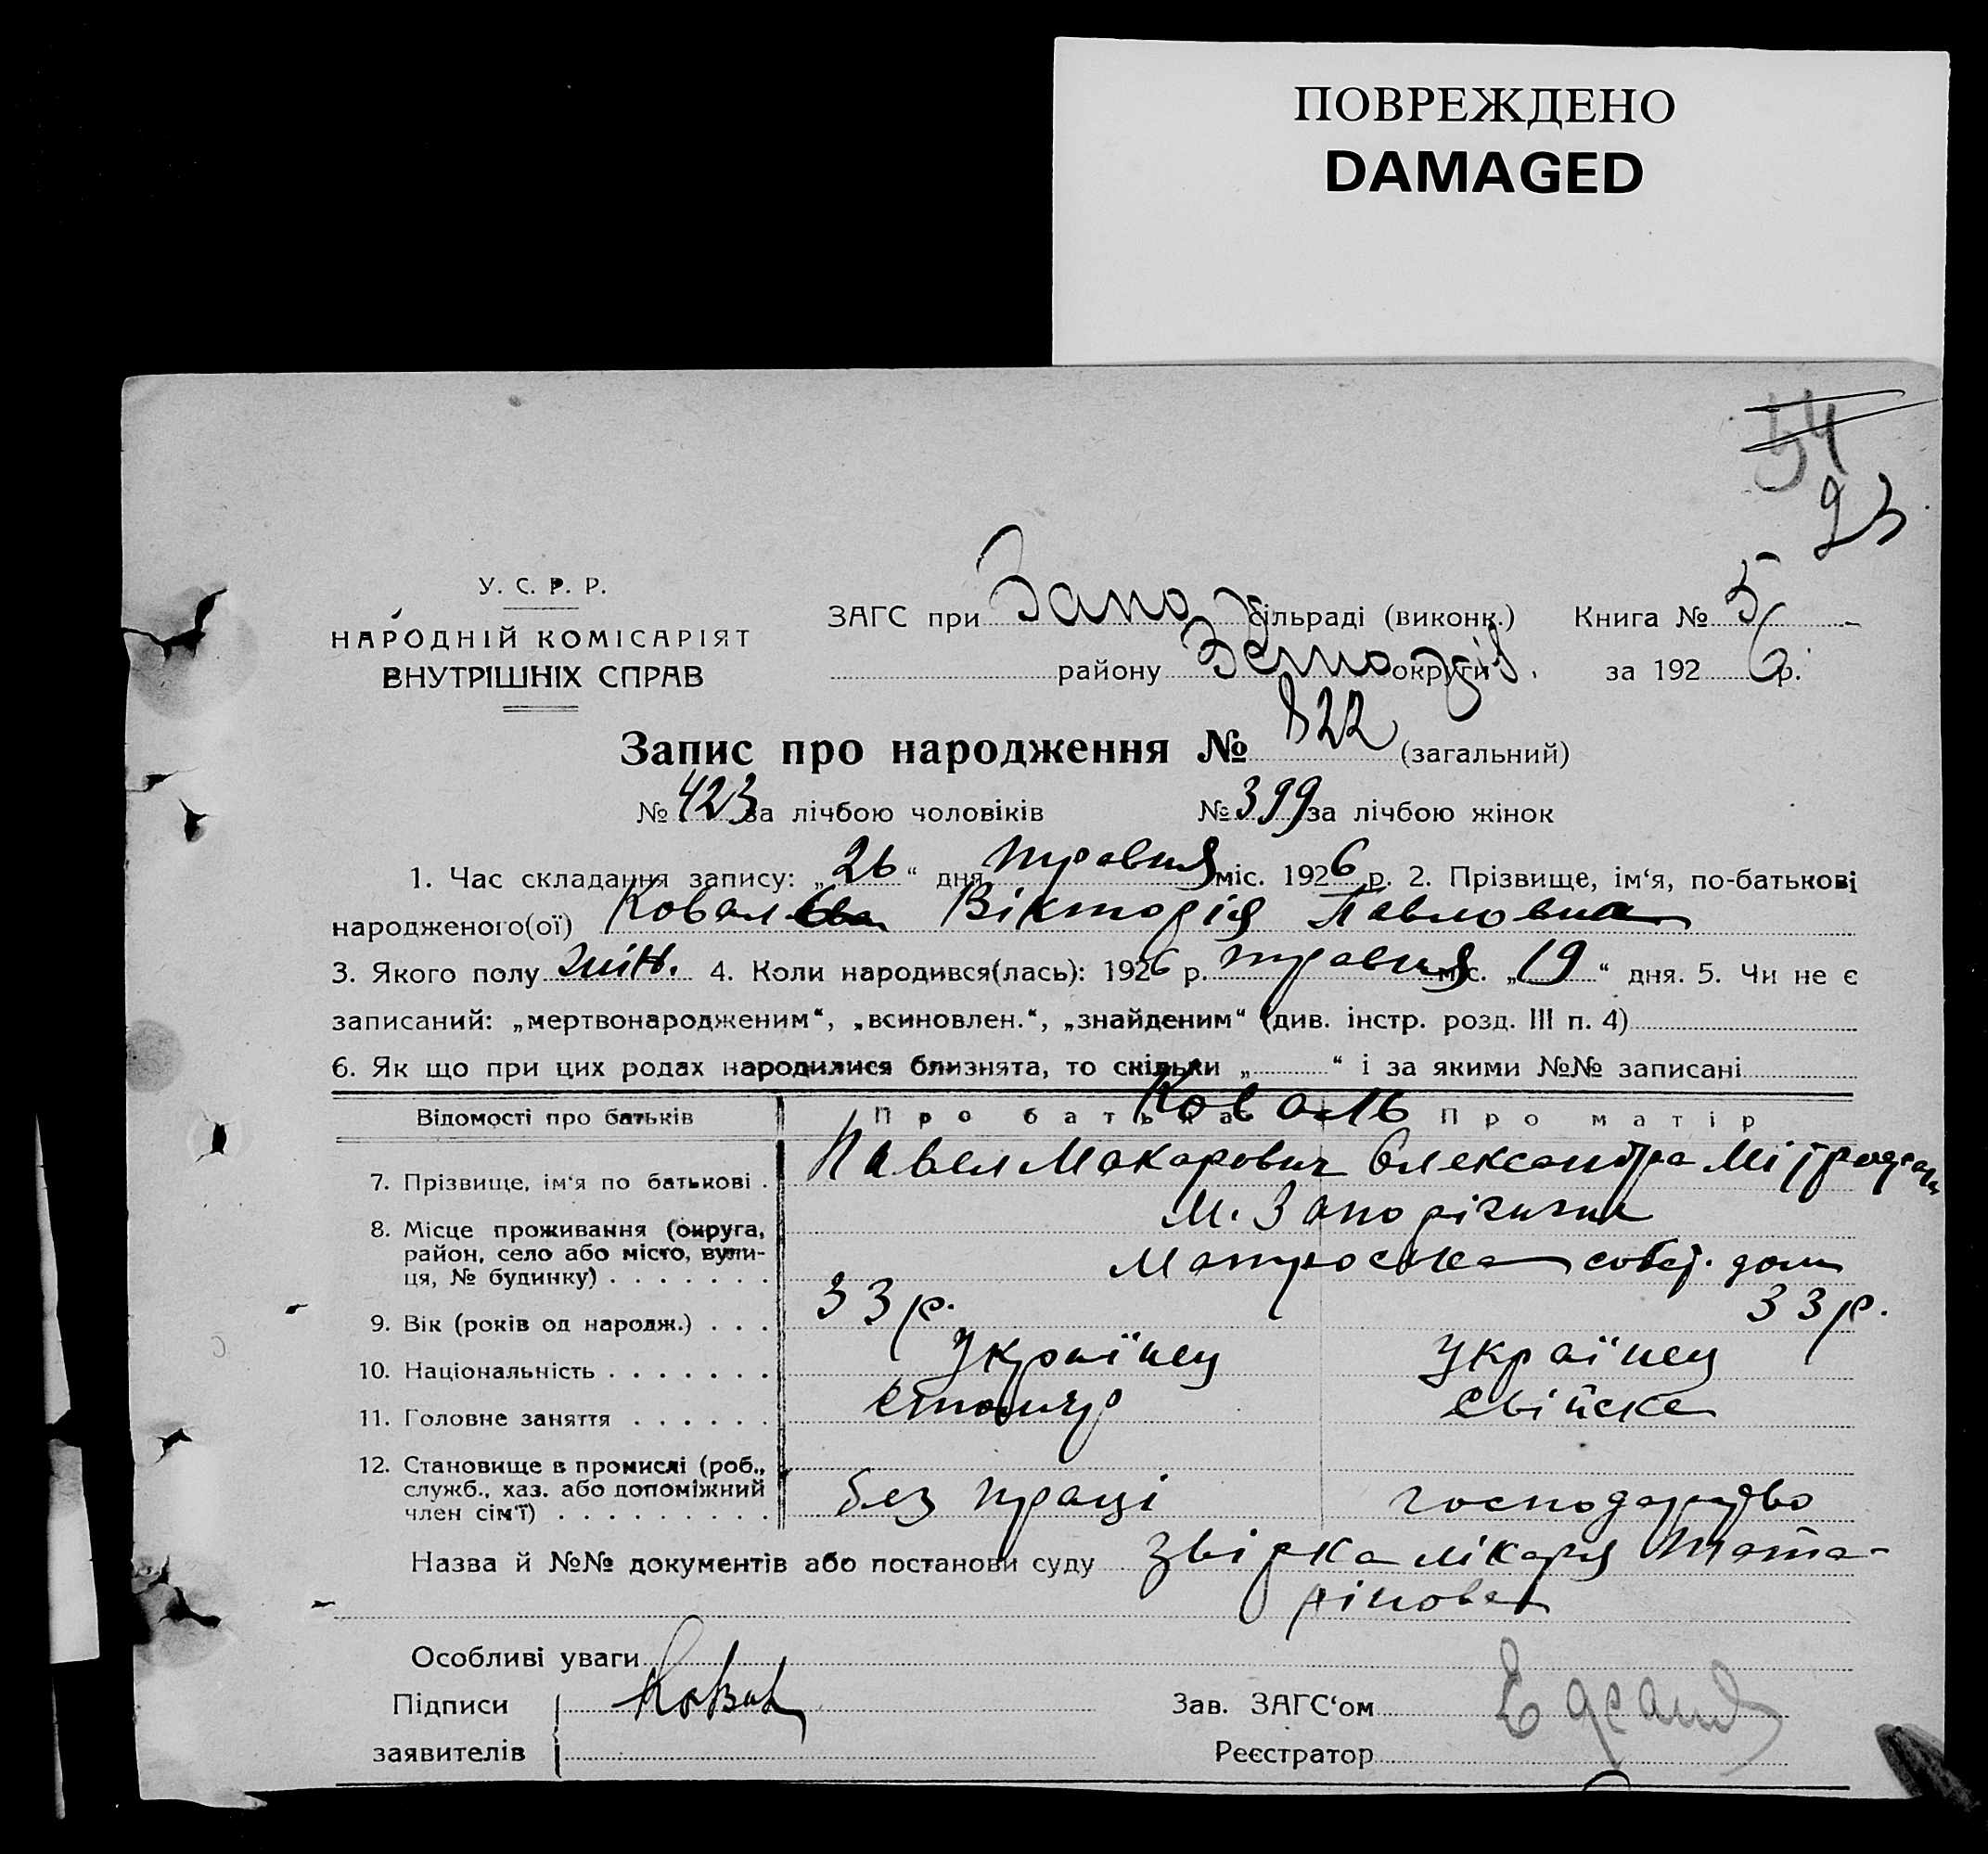 ПОВРЕЖДЕНО
DAMAGED
54
23
У. С. Р. Р.
НАРОДНІЙ КОМІСАРІЯТ
ВНУТРІШНІХ СПРАВ
ЗАГС при Запо сільраді (виконк.) Книга № 5
району округи за 1926 р.
Запис про народження № 822 (загальний)
№ 423 за лічбою чоловіків № 399 за лічбою жінок
1. Час складання запису: „26“ дня травня міс. 1926 р. 2. Прізвище, ім‘я, по-батькові
народженого(ої) Коваль Вікторія Павловна
3. Якого полу жін. 4. Коли народився(лась): 1926 р. травня міс. „19“ дня. 5. Чи не є
записаний: „мертвонародженим“, „всиновлен.“, „знайденим“ (див. інстр. розд. III п. 4)
6. Як що при цих родах народилися близнята, то скільки „ “ і за якими №№ записані
Відомості про батьків Про батька Про матір
Коваль
7. Прізвище, ім‘я по батькові . Павел Макарович Олександра
8. Місце проживання (округа, район, село або місто, вулиця, № будинку) . . . . . . . М. Запоріжжя
Матроська собст. дом
9. Вік (років од народж.) . . . 33 р. 33 р.
10. Національність . . . . . . . Українец Українец
11. Головне заняття . . . . . . столяр свійске
12. Становище в промислі (роб., служб., хаз. або допоміжний член сім‘ї) . . . . . . . . . без праці господарство
Назва й №№ документів або постанови суду звірка лікаря Тата-
рінова
Особливі уваги
Підписи Коваль Зав. ЗАГС‘ом
заявителів Реєстратор